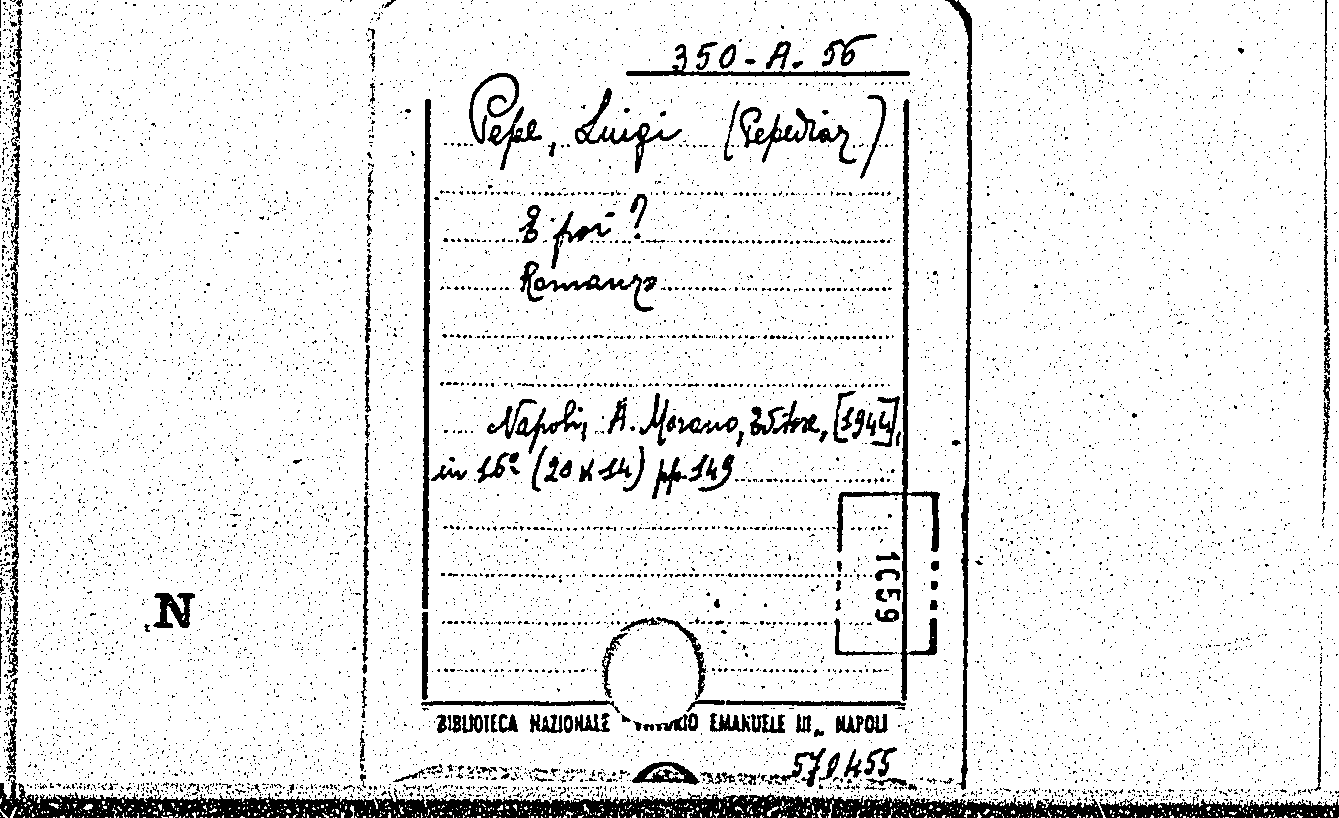 350-A. 56
Pepe, Luigi (Pepediaz)
E poi?
Romanzo
Napoli, A. Morano, Editore, [1944],
in 16º (20 x 14) pp. 149
1059
N
BIBLIOTECA NAZIONALE "VITTORIO EMANUELE III„ NAPOLI
570455